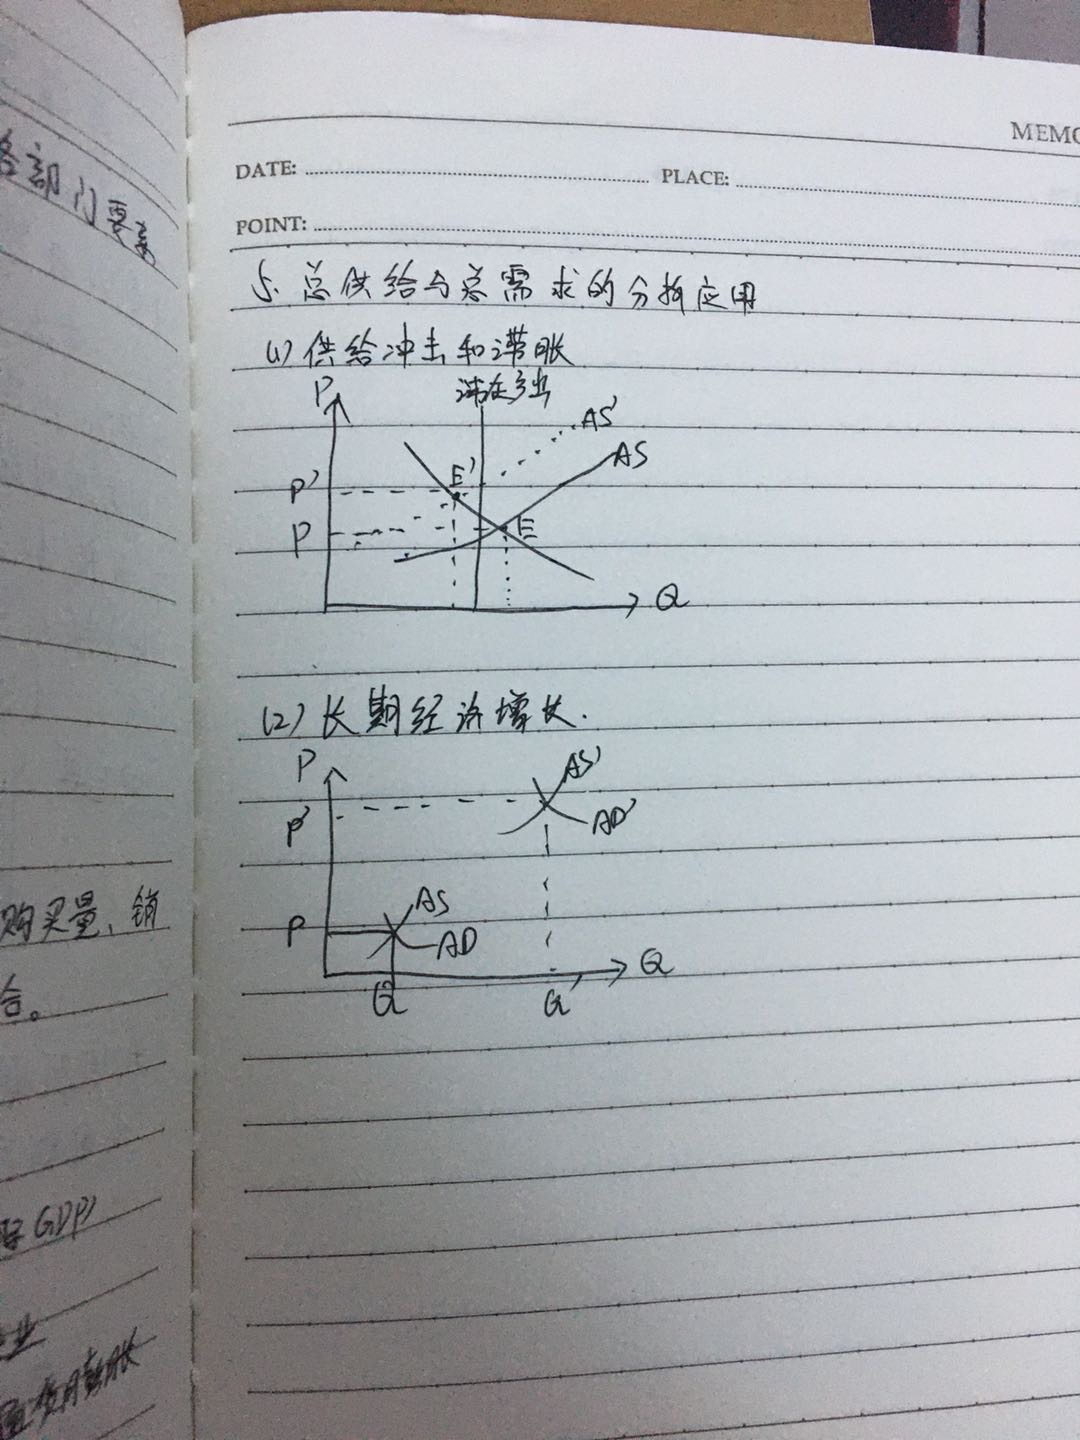 各部门要
购买量、销
合。
GDP
业
胀
MEMO
DATE:
PLACE:
POINT:
5. 总供给与总需求的分析应用
(1) 供给冲击和滞胀
P
潜在产出
AS'
AS
P'
E'
P
E
Q
(2) 长期经济增长.
P
AS'
P'
AD'
AS
P
AD
Q
Q
Q'